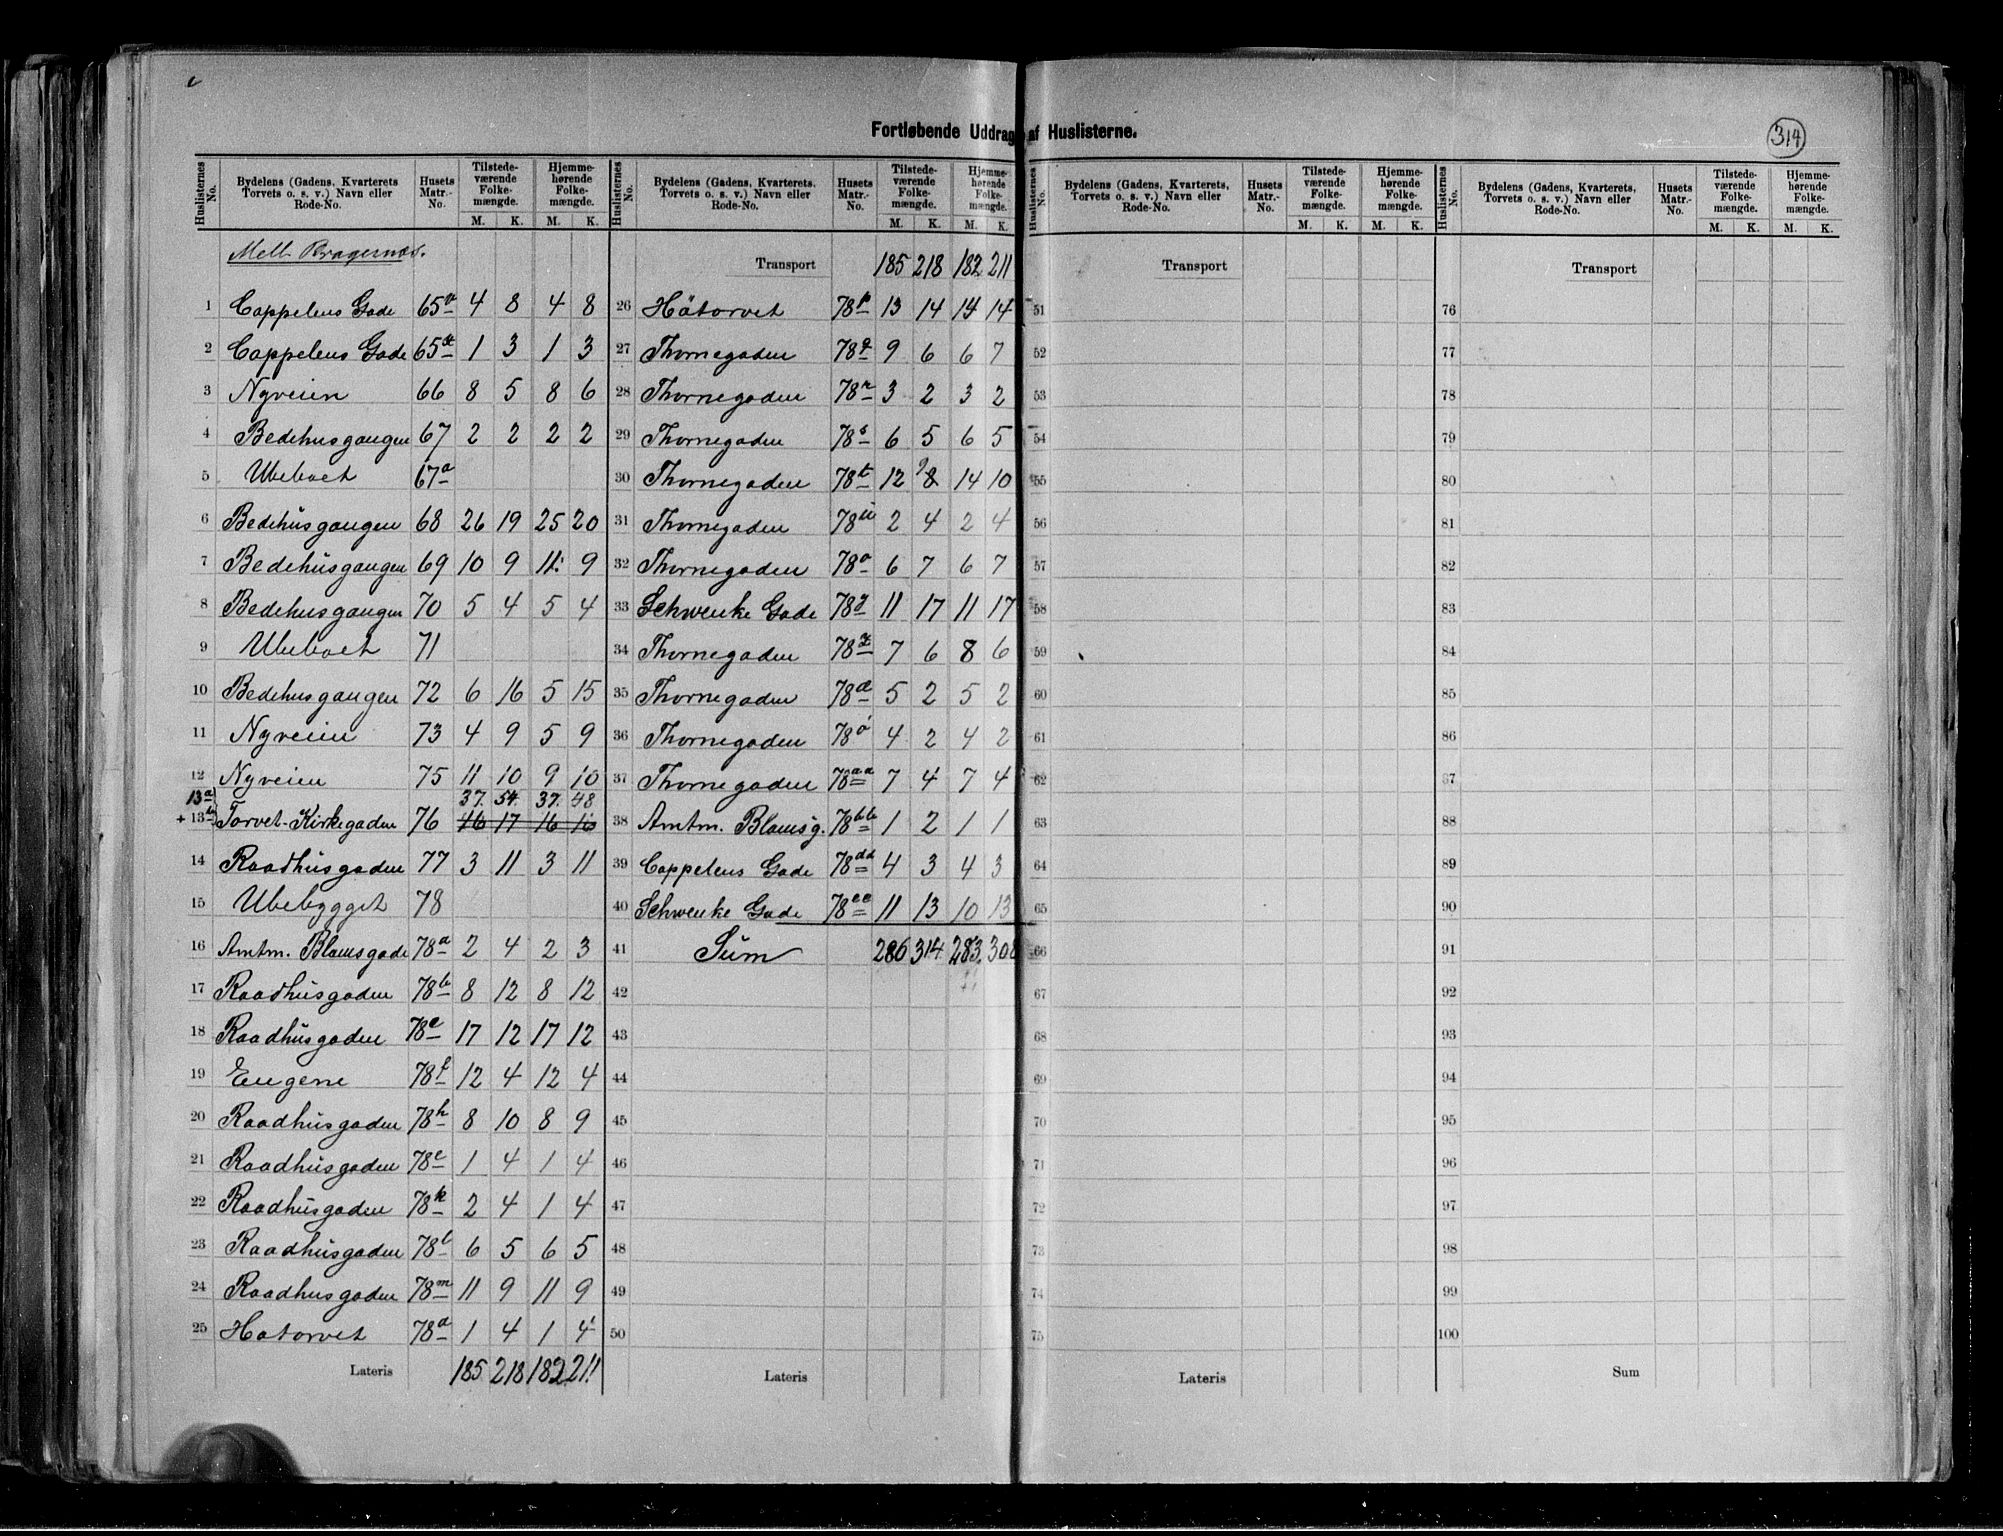 Fortløbende Uddrag af Huslisterne.
314
Huslisternes No. | Bydelens (Gadens, Kvarterets, Torvets o. s. v.) Navn eller Rode-No. | Husets Matr.-No. | Tilstedeværende Folkemængde. M. K. | Hjemmehørende Folkemængde. M. K.
Mell. Bragernæs.
1 Cappelens Gade 65 4 8 4 8
2 Cappelens Gade 65æ 1 3 1 3
3 Nyveien 66 8 5 8 6
4 Bedehusgangen 67 2 2 2 2
5 Ubeboet 67a
6 Bedehusgangen 68 26 19 25 20
7 Bedehusgangen 69 10 9 11 9
8 Bedehusgangen 70 5 4 5 4
9 Ubeboet 71
10 Bedehusgangen 72 6 16 5 15
11 Nyveien 73 4 9 5 9
12 Nyveien 75 11 10 9 10
13a 37. 54. 37. 48
+ 13b Torvet-Kirkegaden 76 16 17 16 16
14 Raadhusgaden 77 3 11 3 11
15 Ubebygget 78
16 Amtm. Blomsgade 78a 2 4 2 3
17 Raadhusgaden 78b 8 12 8 12
18 Raadhusgaden 78e 17 12 17 12
19 Eugene 78f 12 4 12 4
20 Raadhusgaden 78h 8 10 8 9
21 Raadhusgaden 78 1 4 1 4
22 Raadhusgaden 78k 2 4 1 4
23 Raadhusgaden 78l 6 5 6 5
24 Raadhusgaden 78m 11 9 11 9
25 Hötorvet 78 1 4 1 4
Lateris 185 218 182 211
Huslisternes No. | Bydelens (Gadens, Kvarterets, Torvets o. s. v.) Navn eller Rode-No. | Husets Matr.-No. | Tilstedeværende Folkemængde. M. K. | Hjemmehørende Folkemængde. M. K.
Transport 185 218 182 211
26 Hötorvet 78p 13 14 14 14
27 Thornegaden 78q 9 6 6 7
28 Thornegaden 78r 3 2 3 2
29 Thornegaden 78s 6 5 6 5
30 Thornegaden 78t 12 9 8 14 10
31 Thornegaden 78u 2 4 2 4
32 Thornegaden 78 6 7 6 7
33 Schwenke Gade 78y 11 17 11 17
34 Thornegaden 78z 7 6 8 6
35 Thornegaden 78æ 5 2 5 2
36 Thornegaden 78ö 4 2 4 2
37 Thornegaden 78aa 7 4 7 4
38 Amtm. Blomsg. 78bb 1 2 1 1
39 Cappelens Gade 78dd 4 3 4 3
40 Schwenke Gade 78ee 11 13 10 13
41 Sum 286 314 283 308
42
43
44
45
46
47
48
49
50
Lateris
Huslisternes No. | Bydelens (Gadens, Kvarterets, Torvets o. s. v.) Navn eller Rode-No. | Husets Matr.-No. | Tilstedeværende Folkemængde. M. K. | Hjemmehørende Folkemængde. M. K.
Transport
51
52
53
54
55
56
57
58
59
60
61
62
63
64
65
66
67
68
69
70
71
72
73
74
75
Lateris
Huslisternes No. | Bydelens (Gadens, Kvarterets, Torvets o. s. v.) Navn eller Rode-No. | Husets Matr.-No. | Tilstedeværende Folkemængde. M. K. | Hjemmehørende Folkemængde. M. K.
Transport
76
77
78
79
80
81
82
83
84
85
86
87
88
89
90
91
92
93
94
95
96
97
98
99
100
Sum